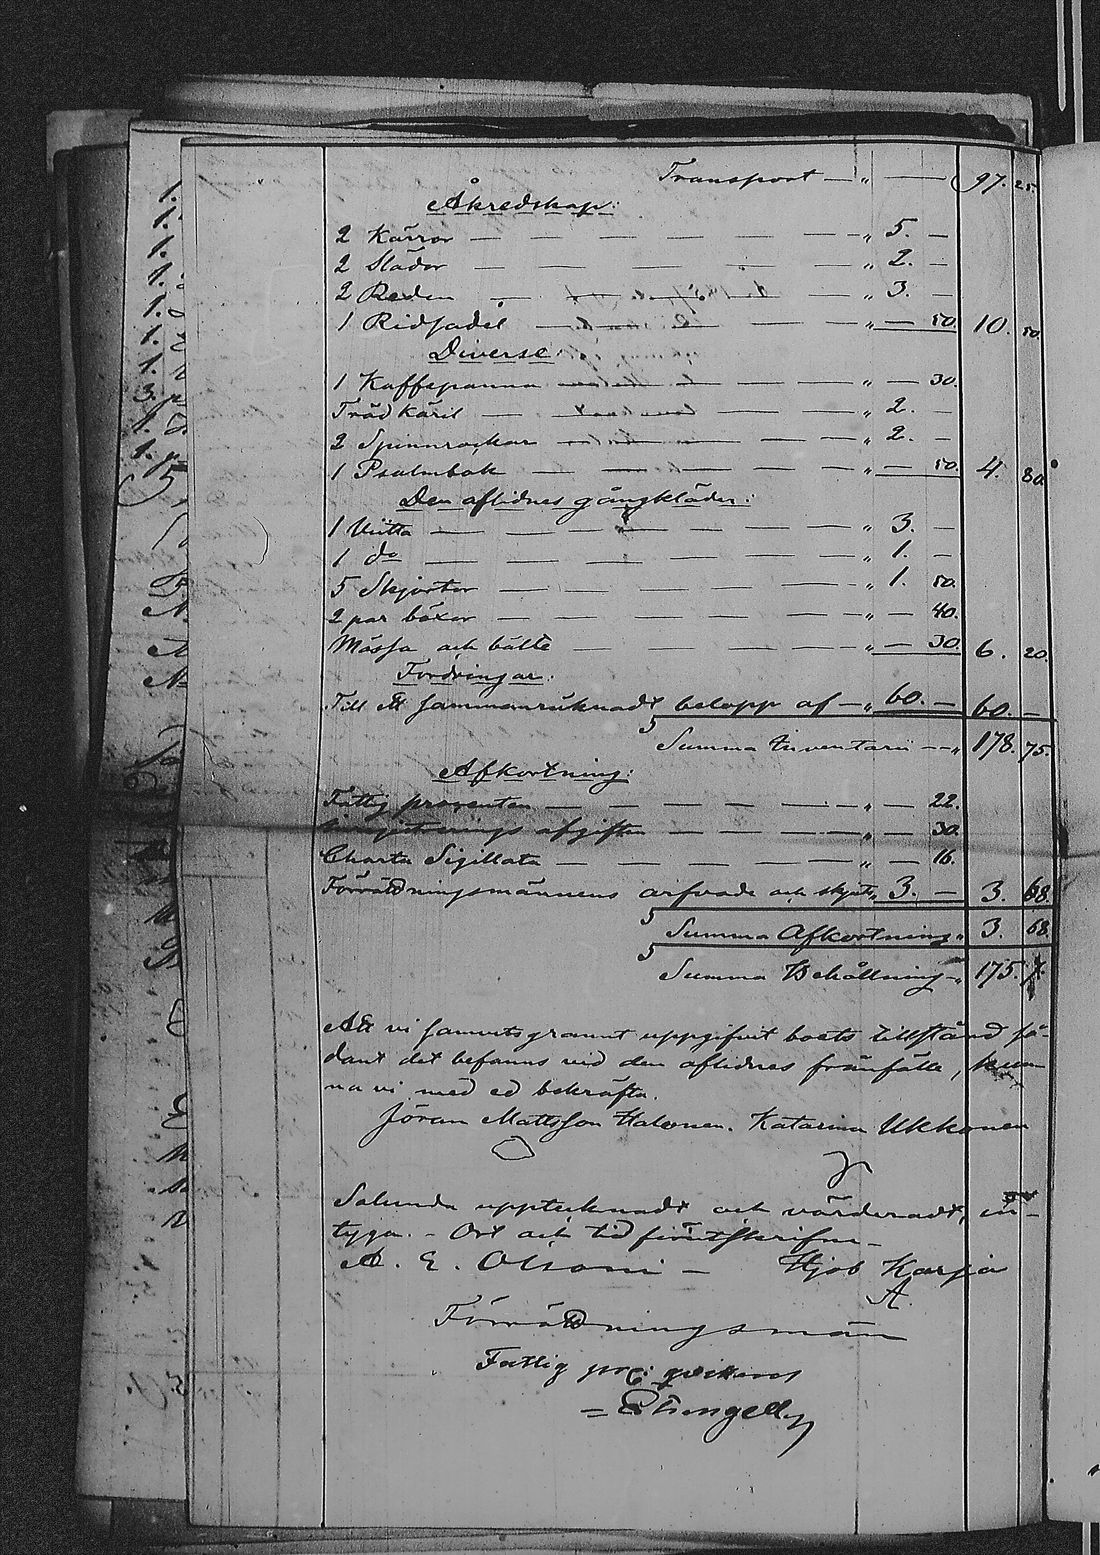 Transport — " — 97. 25.
Åkredskap:
2 Kärror — " 5. —
2 Slädor — " 2. —
2 Reden — " 3. —
1 Ridsadel — " — 50. 10. 50.
Diverse:
1 Kaffepanna — " — 30.
Träd Käril — " 2. —
2 Spinnrockar — " 2. —
1 Psalmbok — " — 50. 4. 80.
Den aflidnes gångkläder:
1 Viitta — " 3. —
1 do — " 1. —
5 Skjortor — " 1. 50.
2 par böxor — " — 40.
Mössa och bälte — " — 30. 6. 20.
Fordringar:
Till ett sammanräknadt belopp af — " 60. — 60. —
Summa Inventarii — " 178. 75.
Afkortning:
Fattig procenten — " — 22.
afgiften — " — 30.
Charta Sigillata — " — 16.
Förrättningsmännens arfvode och skjuts " 3. — 3. 68.
Summa Afkortning " 3. 68.
Summa Behållning " 175. 7.
Att vi samvetsgrannt uppgifvit boets tillstånd så-
dant det befanns vid den aflidnes frånfälle, kun-
na vi med ed bekräfta.
Jöran Mattsson Halonen. Katarina Ukkonen
Sålunda upptecknadt och värderadt, in-
tyga. - Ort och tid förutskrifne -
A. E. Olsoni — Hjob Karja
Förrättningsmän
Fattig pro: qvitteras